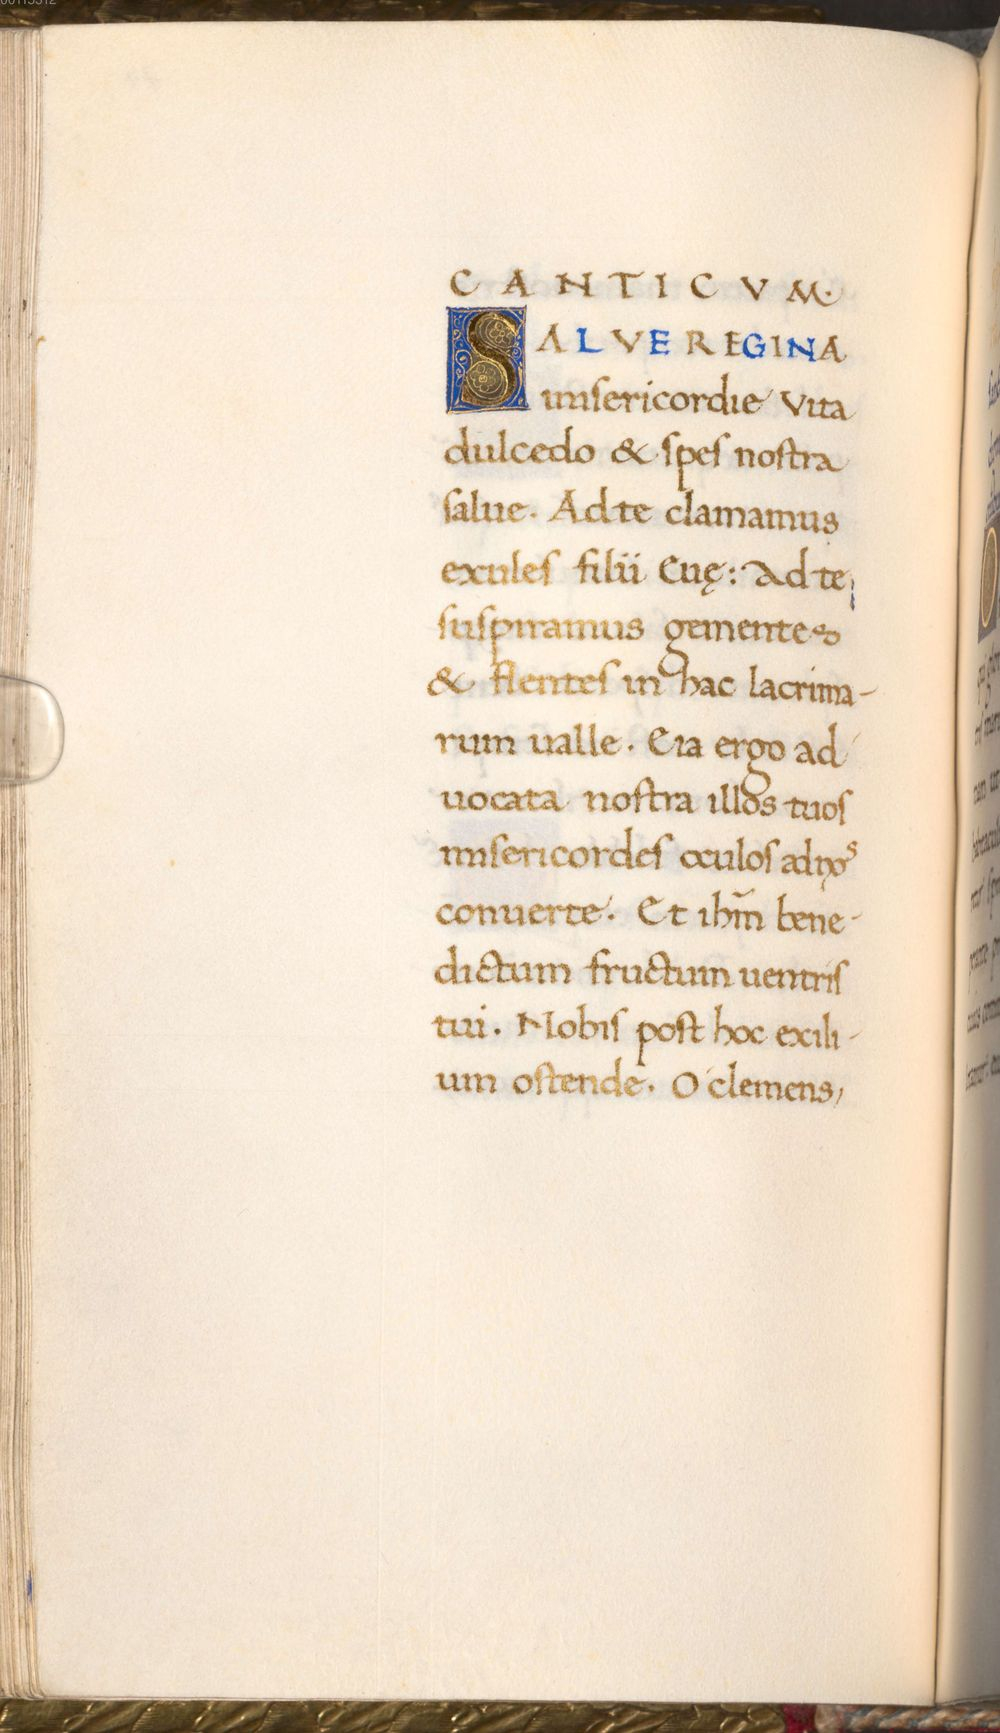 CANTICVM.
SALVE REGINA
misericordie Vita
dulcedo & spes nostra
salue. Ad te clamamus
exules filii Euę: Ad te
suspiramus gementes
& flentes in hac lacrima-
rum ualle. Eia ergo ad
uocata nostra illos tuos
misericordes oculos ad nos
conuerte. Et ihm̄ bene-
dictum fructum uentris
tui. Nobis post hoc exili-
um ostende. O clemens,